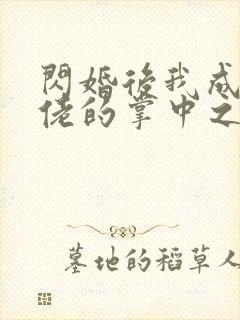 閃婚後我成
佬的掌中之
墓地的稻草人